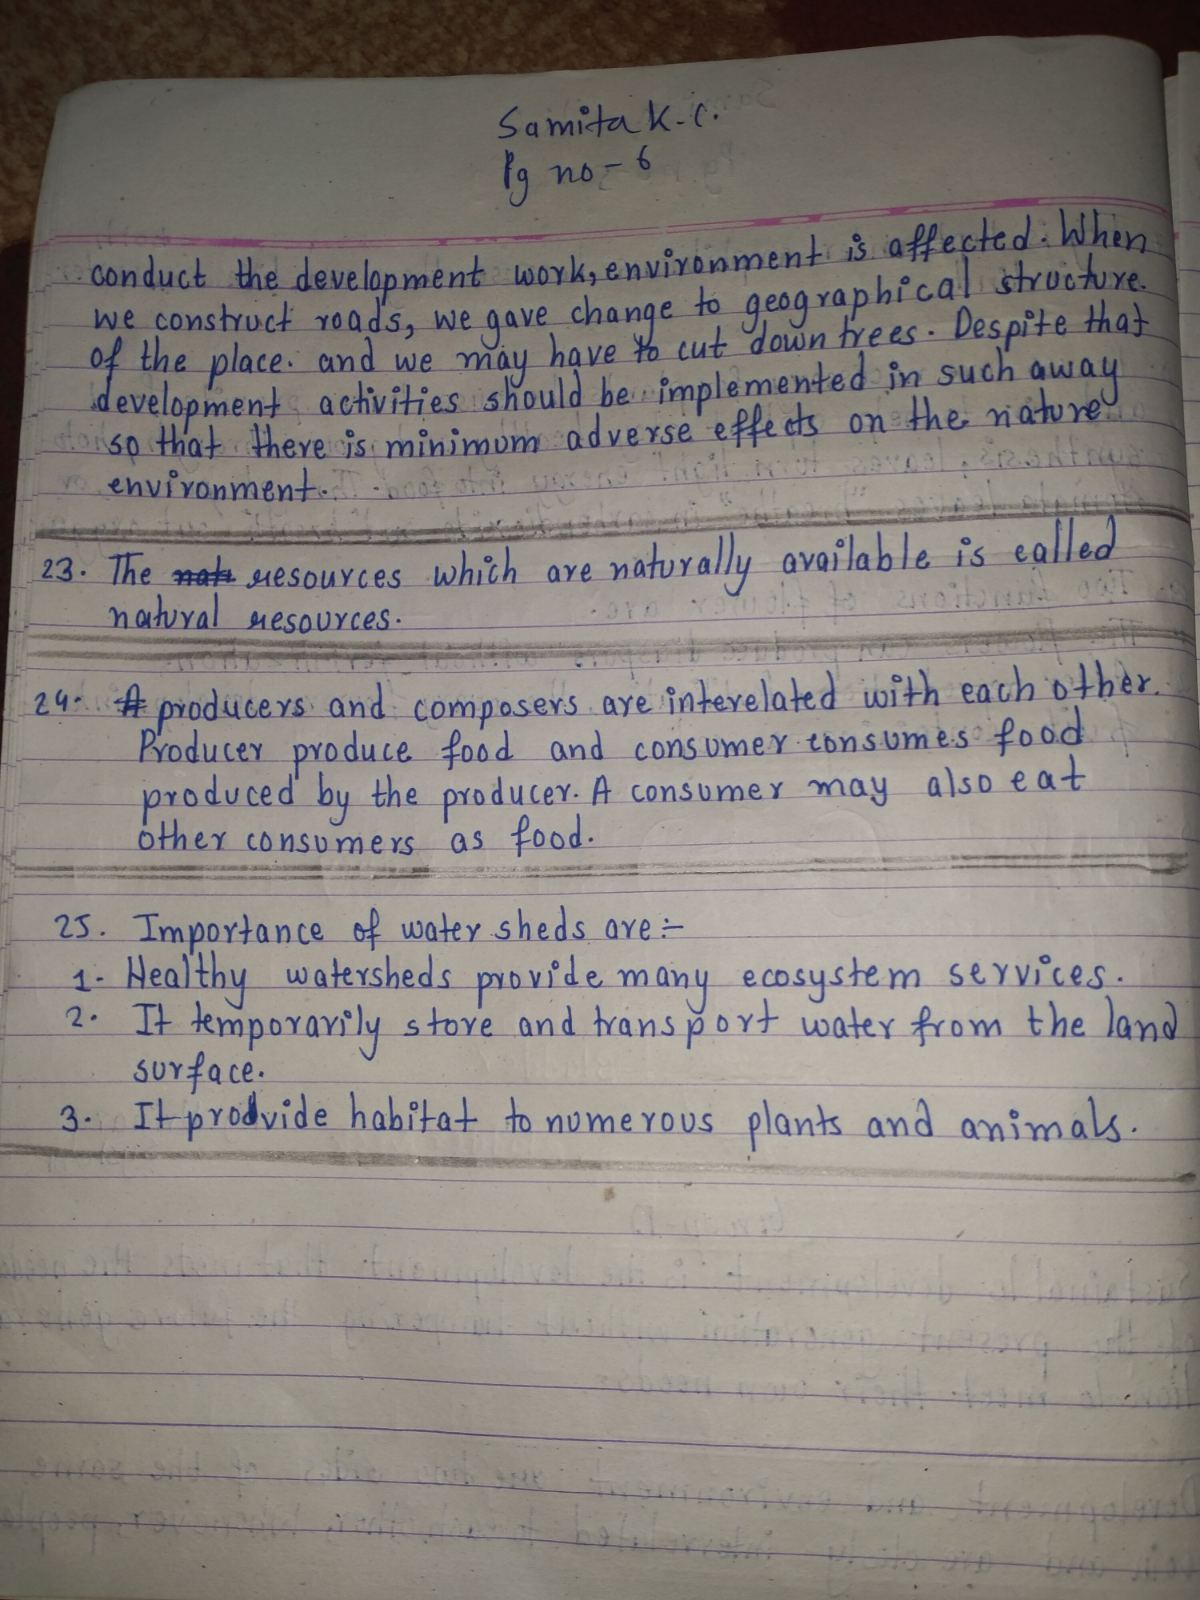 Samita K.C.
Pg no - 6
conduct the development work, environment is affected. When
we construct roads, we gave change to geographical structure.
of the place. and we may have to cut down trees. Despite that
development activities should be implemented in such away
so that there is minimum adverse effects on the nature
environment.
23. The resources which are naturally available is called
natural resources.
24. producers and composers are interelated with each other.
Producer produce food and consumer consumes food
produced by the producer. A consumer may also eat
other consumers as food.
25. Importance of water sheds are :-
1. Healthy watersheds provide many ecosystem services.
2. It temporarily store and transport water from the land
surface.
3. It prodvide habitat to numerous plants and animals.